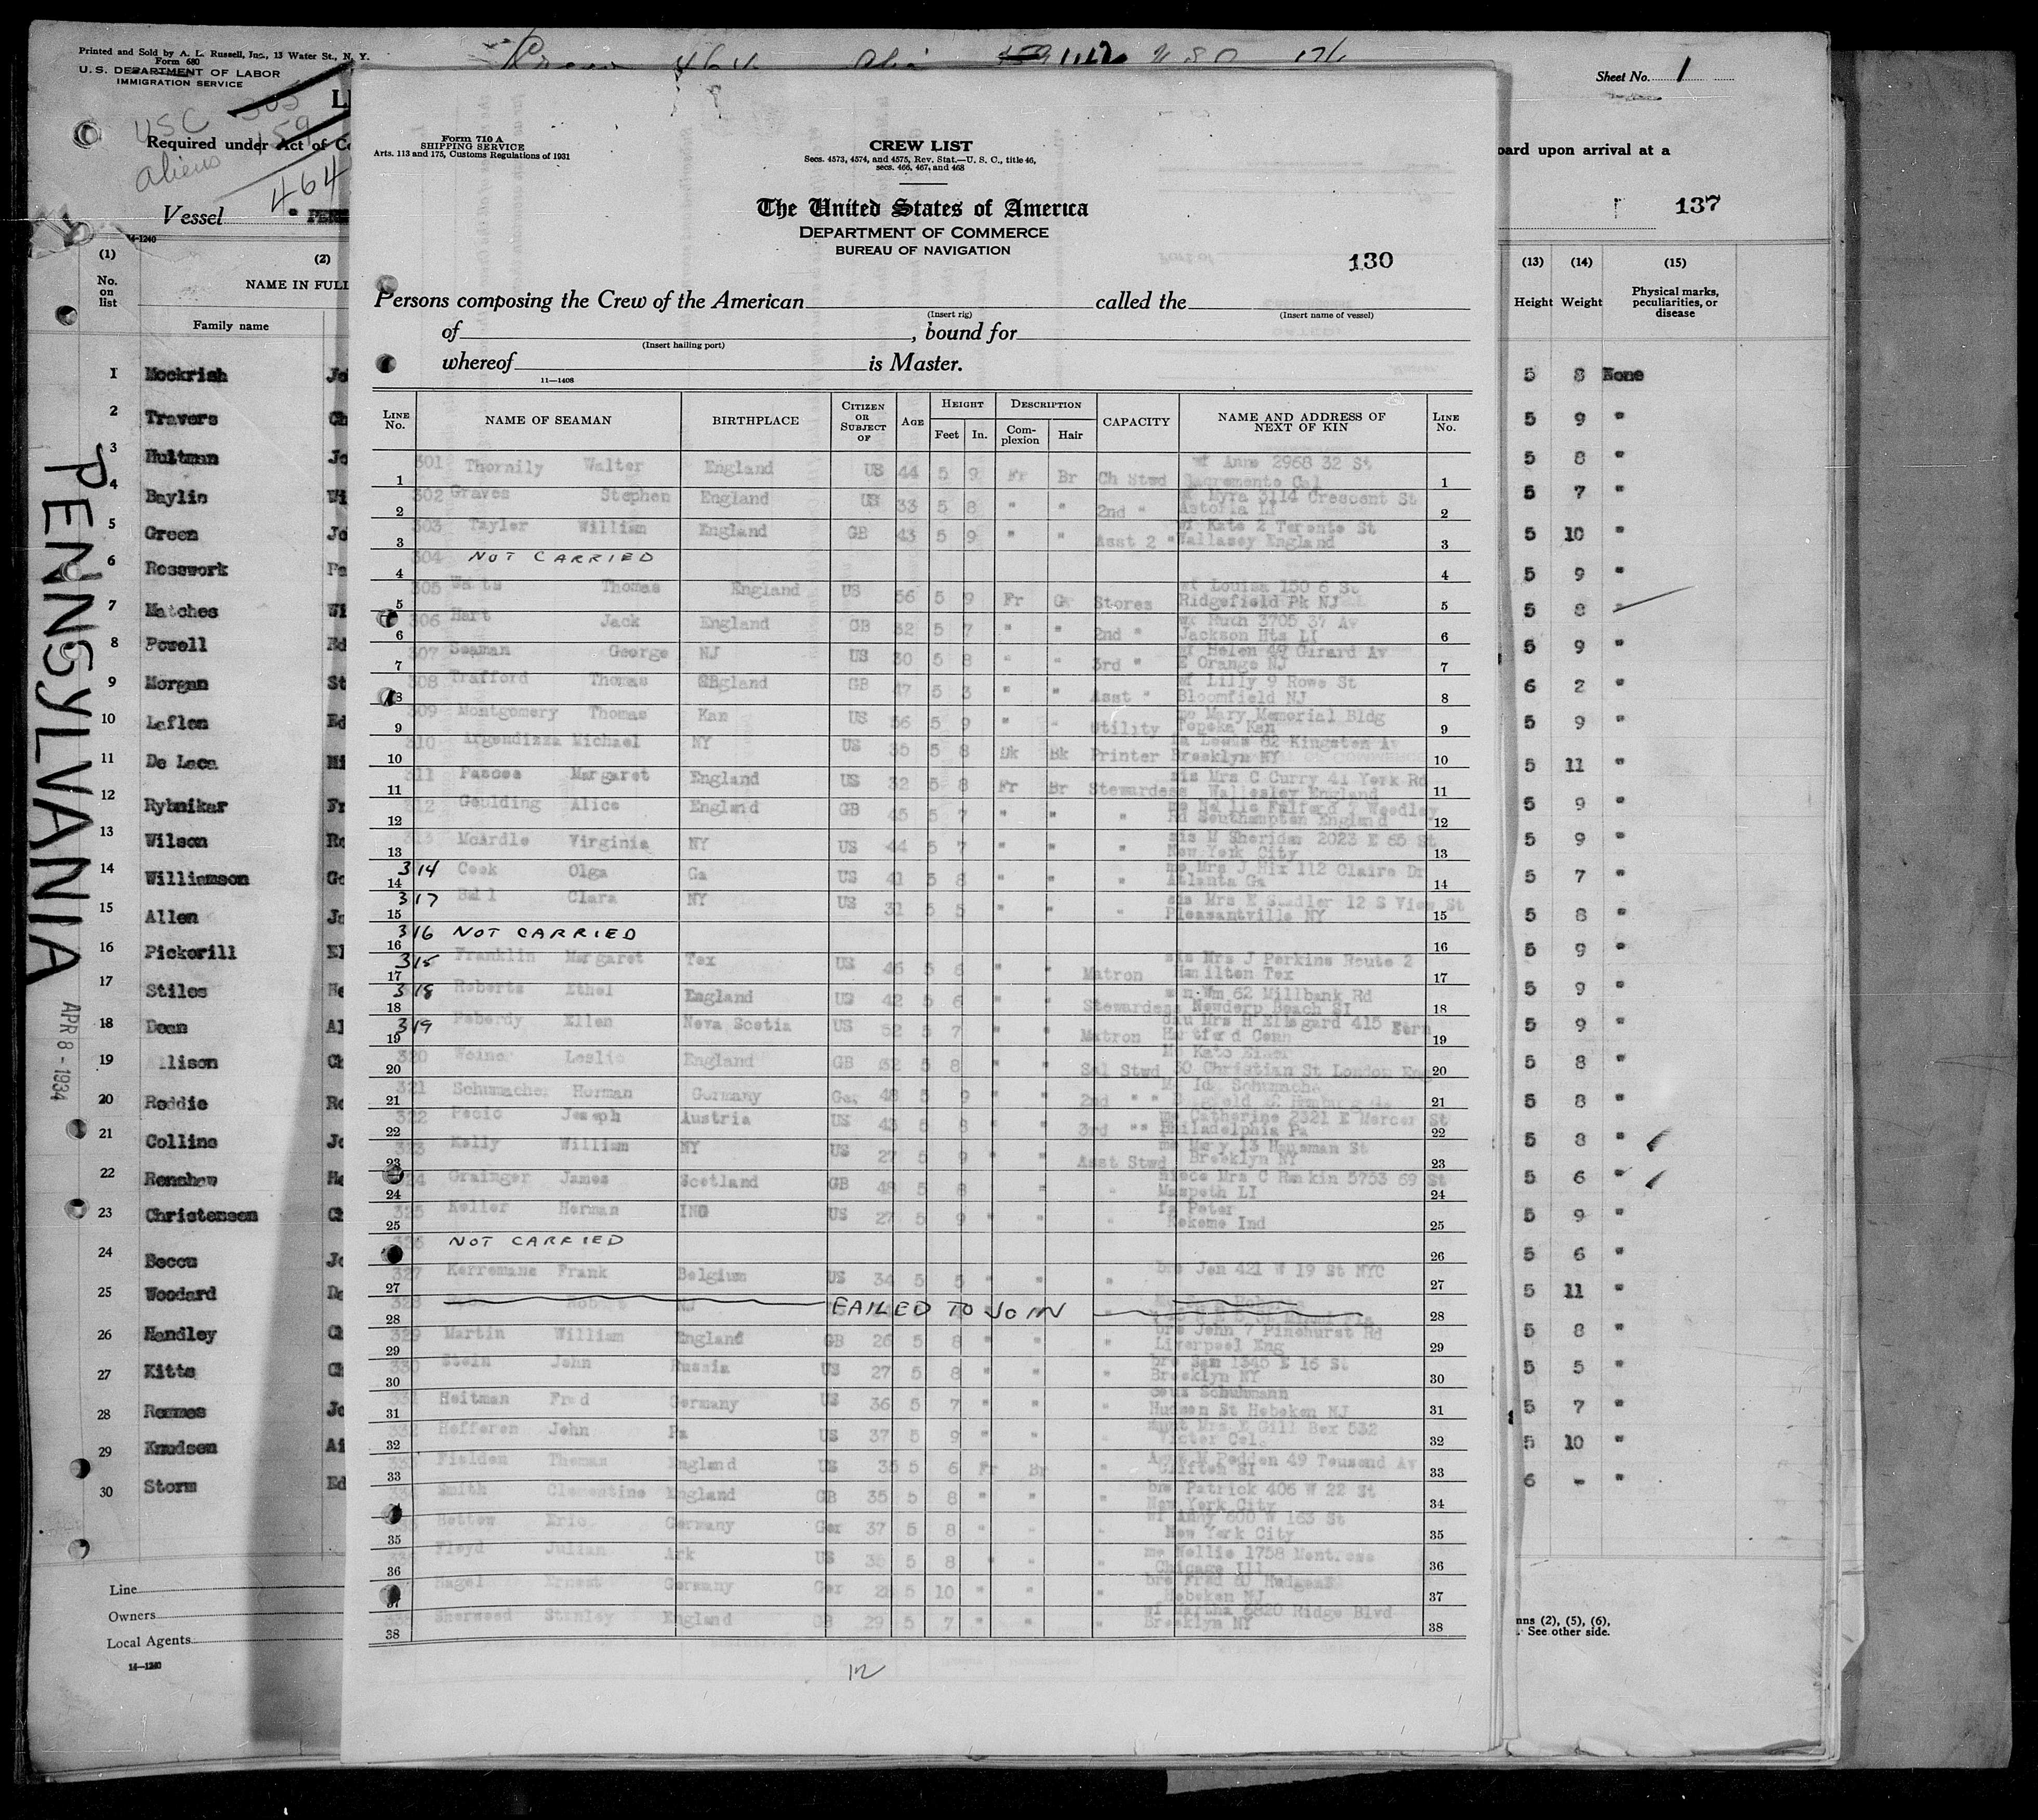 Printed and Sold by A. L. Russell, Inc., 13 Water St., N. Y.
Form 680
U. S. DEPARTMENT OF LABOR
IMMIGRATION SERVICE
USC 305
Aliens 159
464
Required under Act of
Vessel
14-1240
(1) (2)
No. on list
NAME IN FULL
Family name
1 Mockrish
2 Travers
3 Hultman
4 Baylis
5 Green
6 Rosswork
7 Matches
8 Powell
9 Morgan
10 Laflen
11 De Laca
12 Rybnikar
13 Wilson
14 Williamson
15 Allen
16 Pickerill
17 Stiles
18 Dean
19 Allison
20 Reddie
21 Collins
22 Renshaw
23 Christensen
24 Beccu
25 Woodard
26 Handley
27 Kitts
28 Rommes
29 Knudsen
30 Storm
Line
Owners
Local Agents
14-1240
PENNSYLVANIA
APR 8 - 1934
Form 710 A
SHIPPING SERVICE
Arts. 113 and 175, Customs Regulations of 1931
CREW LIST
Secs. 4573, 4574, and 4575, Rev. Stat.—U. S. C., title 46,
secs. 466, 467, and 468
The United States of America
DEPARTMENT OF COMMERCE
BUREAU OF NAVIGATION
130
Persons composing the Crew of the American called the
(Insert rig) (Insert name of vessel)
of , bound for
(Insert hailing port)
whereof is Master.
11—1408
LINE No. NAME OF SEAMAN BIRTHPLACE CITIZEN OR SUBJECT OF AGE HEIGHT Feet In. DESCRIPTION Complexion Hair CAPACITY NAME AND ADDRESS OF NEXT OF KIN LINE No.
1 301 Thornily Walter England US 44 5 9 Fr Br Ch Stwd wf Anne 2968 32 St Sacramento Cal 1
2 302 Graves Stephen England US 33 5 8 " " 2nd " wf Myra 3114 Crescent St Astoria LI 2
3 303 Tayler William England GB 43 5 9 " " Asst 2 " wf Kate 2 Toronto St Wallasey England 3
4 304 NOT CARRIED 4
5 305 Watts Thomas England US 56 5 9 Fr Gr Stores wf Louisa 150 6 St Ridgefield Pk NJ 5
6 306 Hart Jack England GB 32 5 7 " " 2nd " wf Ruth 3705 37 Av Jackson Hts LI 6
7 307 Seaman George NJ US 30 5 8 " " 3rd " wf Helen 49 Girard Av E Orange NJ 7
8 308 Trafford Thomas England GB 47 5 3 " " Asst " wf Lilly 9 Rowe St Bloomfield NJ 8
9 309 Montgomery Thomas Kan US 56 5 9 " " Utility Mary Memorial Bldg Topeka Kan 9
10 310 Argendizza Michael NY US 35 5 8 Dk Bk Printer fa Lewis 82 Kingston Av Brooklyn NY 10
11 311 Pascoe Margaret England US 32 5 8 Fr Br Stewardess sis Mrs C Curry 41 York Rd Wallesley England 11
12 312 Goulding Alice England GB 45 5 7 " " " Nellie Fulford 7 Woodley Rd Southampton England 12
13 313 McArdle Virginia NY US 44 5 7 " " " sis M Sheridan 2023 E 65 St New York City 13
14 314 Cook Olga Ga US 41 5 8 " " " Mrs J Hix 112 Claire Dr Atlanta Ga 14
15 317 Ball Clara NY US 31 5 5 " " " sis Mrs E Sandler 12 S View St Pleasantville NY 15
16 316 NOT CARRIED 16
17 315 Franklin Margaret Tex US 46 5 6 " " Matron sis Mrs J Perkins Route 2 Hamilton Tex 17
18 318 Roberts Ethel England US 42 5 6 " " Stewardess Wm 62 Millbank Rd Newdorp Beach SI 18
19 319 Peberdy Ellen Nova Scotia US 52 5 7 " " Matron dau Mrs H Ellegard 415 Fern Hartford Conn 19
20 320 Leslie England GB 32 5 8 " " Sal Stwd 50 Christian St London Eng 20
21 321 Schumacher Herman Germany Ger 48 5 9 " " 2nd " " Ida Schumache 21
22 322 Pecic Joseph Austria US 43 5 8 " " 3rd " " Catherine 2321 E Mercer St Philadelphia Pa 22
23 323 Kelly William NY US 27 5 9 " " Asst Stwd Mary 13 Hausman St Brooklyn NY 23
24 324 Grainger James Scotland GB 48 5 8 " " niece Mrs C Rankin 5753 69 St Maspeth LI 24
25 325 Keller Herman IND US 27 5 9 " " " fa Peter Kokomo Ind 25
26 326 NOT CARRIED 26
27 327 Kerremans Frank Belgium US 34 5 5 " " " bro Jen 421 W 19 St NYC 27
28 328 Robert NJ FAILED TO JOIN 28
29 329 Martin William England GB 26 5 8 " " " bro John 7 Pinehurst Rd Liverpool Eng 29
30 330 Stein John Russia US 27 5 8 " " " bro Sam 1345 E 16 St Brooklyn NY 30
31 331 Heitman Fred Germany US 36 5 7 " " " Schuhmann Hudson St Hoboken NJ 31
32 332 Hefferen John Pa US 37 5 9 " " " aunt Mrs E Gill Box 532 Victor Col. 32
33 333 Fielden Thomas England US 35 5 6 Fr Br " M Pedden 49 Tousend Av Clifton SI 33
34 334 Smith Clementine England GB 35 5 8 " " " bro Patrick 406 W 22 St New York City 34
35 335 Hottow Eric Germany Ger 37 5 8 " " " wf Anny 600 W 163 St New York City 35
36 336 Floyd Julian Ark US 35 5 8 " " " Nellie 1758 Montrose Chicago Ill 36
37 Hagel Ernest Germany Ger 28 5 10 " " " bro Fred Hudson Hoboken NJ 37
38 338 Sherwood Stanley England GB 29 5 7 " " " wf Martha 6820 Ridge Blvd Brooklyn NY 38
12
Sheet No. 1
board upon arrival at a
137
(13) (14) (15)
Height Weight Physical marks, peculiarities, or disease
5 8 None
5 9 "
5 8 "
5 7 "
5 10 "
5 9 "
5 8 "
5 9 "
6 2 "
5 9 "
5 11 "
5 9 "
5 9 "
5 7 "
5 8 "
5 9 "
5 9 "
5 9 "
5 8 "
5 8 "
5 8 "
5 6 "
5 9 "
5 6 "
5 11 "
5 8 "
5 5 "
5 7 "
5 10 "
6 - "
nns (2), (5), (6),
See other side.